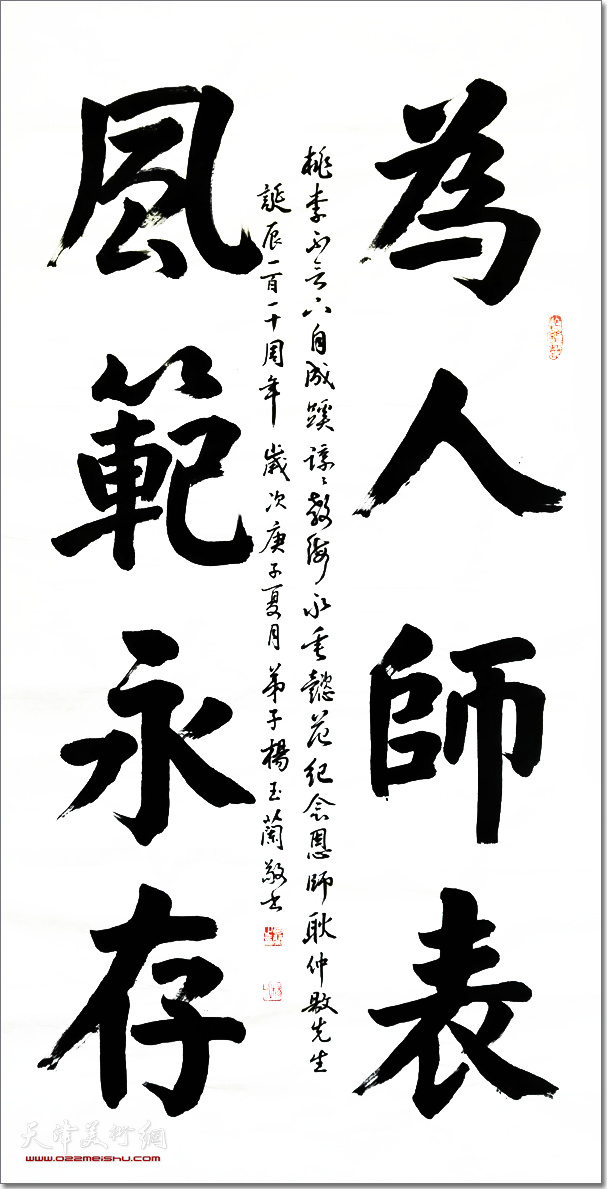 為人師表
桃李不言下自成蹊諄〻教誨永垂懿范紀念恩師耿仲敭先生
誕辰一百一十周年 歲次庚子夏月 弟子楊玉蘭敬書
風範永存
天津美術網
www.022meishu.com